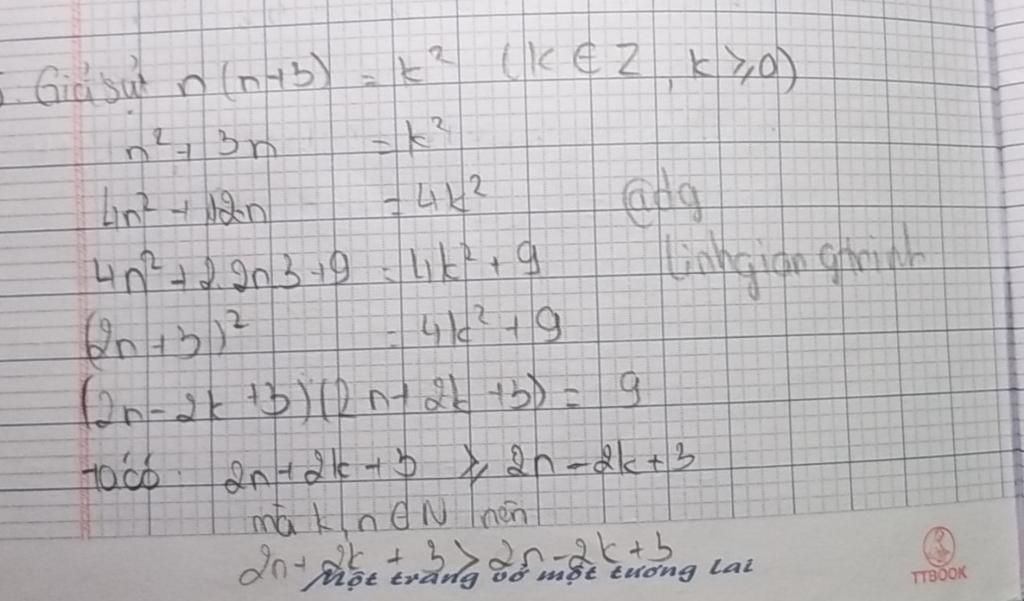 Giả sử n(n+3) = k² (k ∈ Z, k ≥ 0)
n² + 3n = k²
4n² + 12n = 4k²
@dg
4n² + 2.2n3 + 9 = 4k² + 9
(2n+3)² = 4k² + 9
(2n - 2k + 3)(2n + 2k + 3) = 9
ta có: 2n + 2k + 3 ≥ 2n - 2k + 3
mà k, n ∈ N nên
2n + 2k + 3 > 2n - 2k + 3
Một trang vở một tương lai
TTBOOK